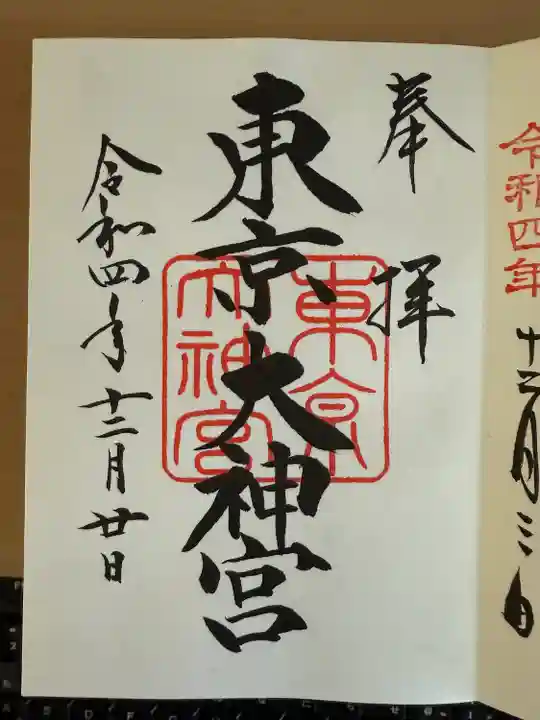 令和四年
十二月三日
奉拝
東京大神宮
東京
大神宮
令和四年十二月廿日